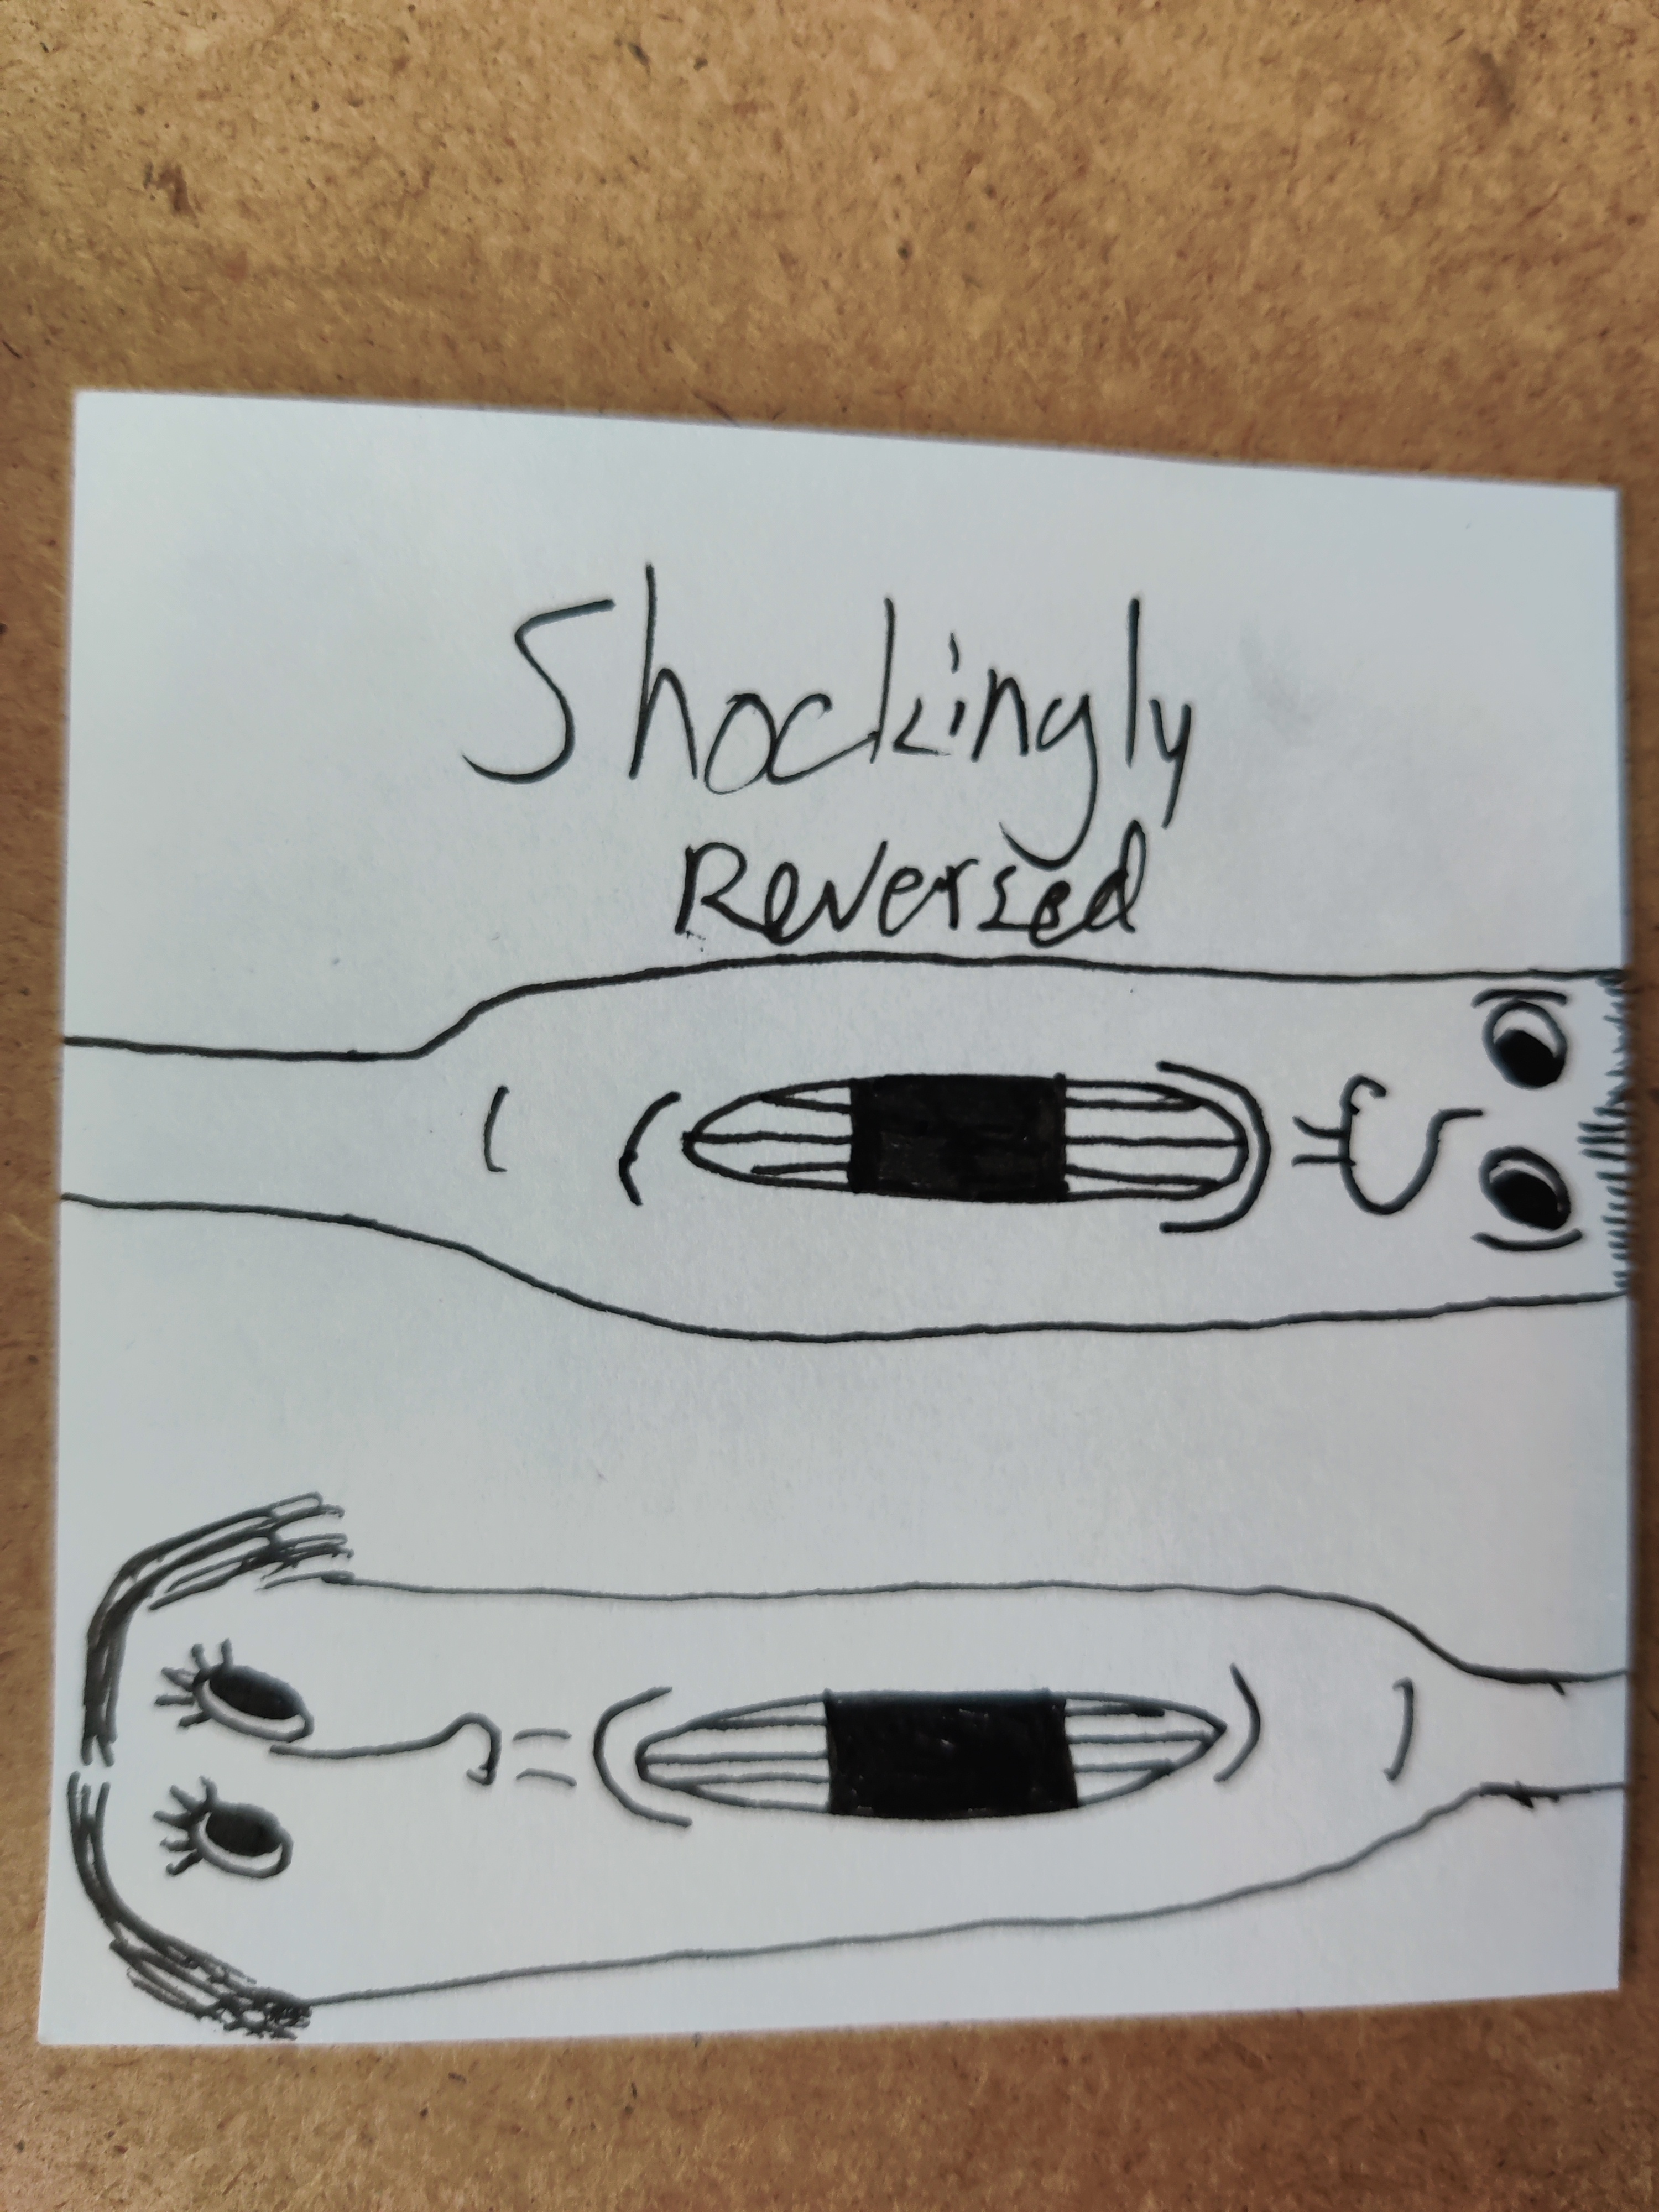 Shockingly
Reversed